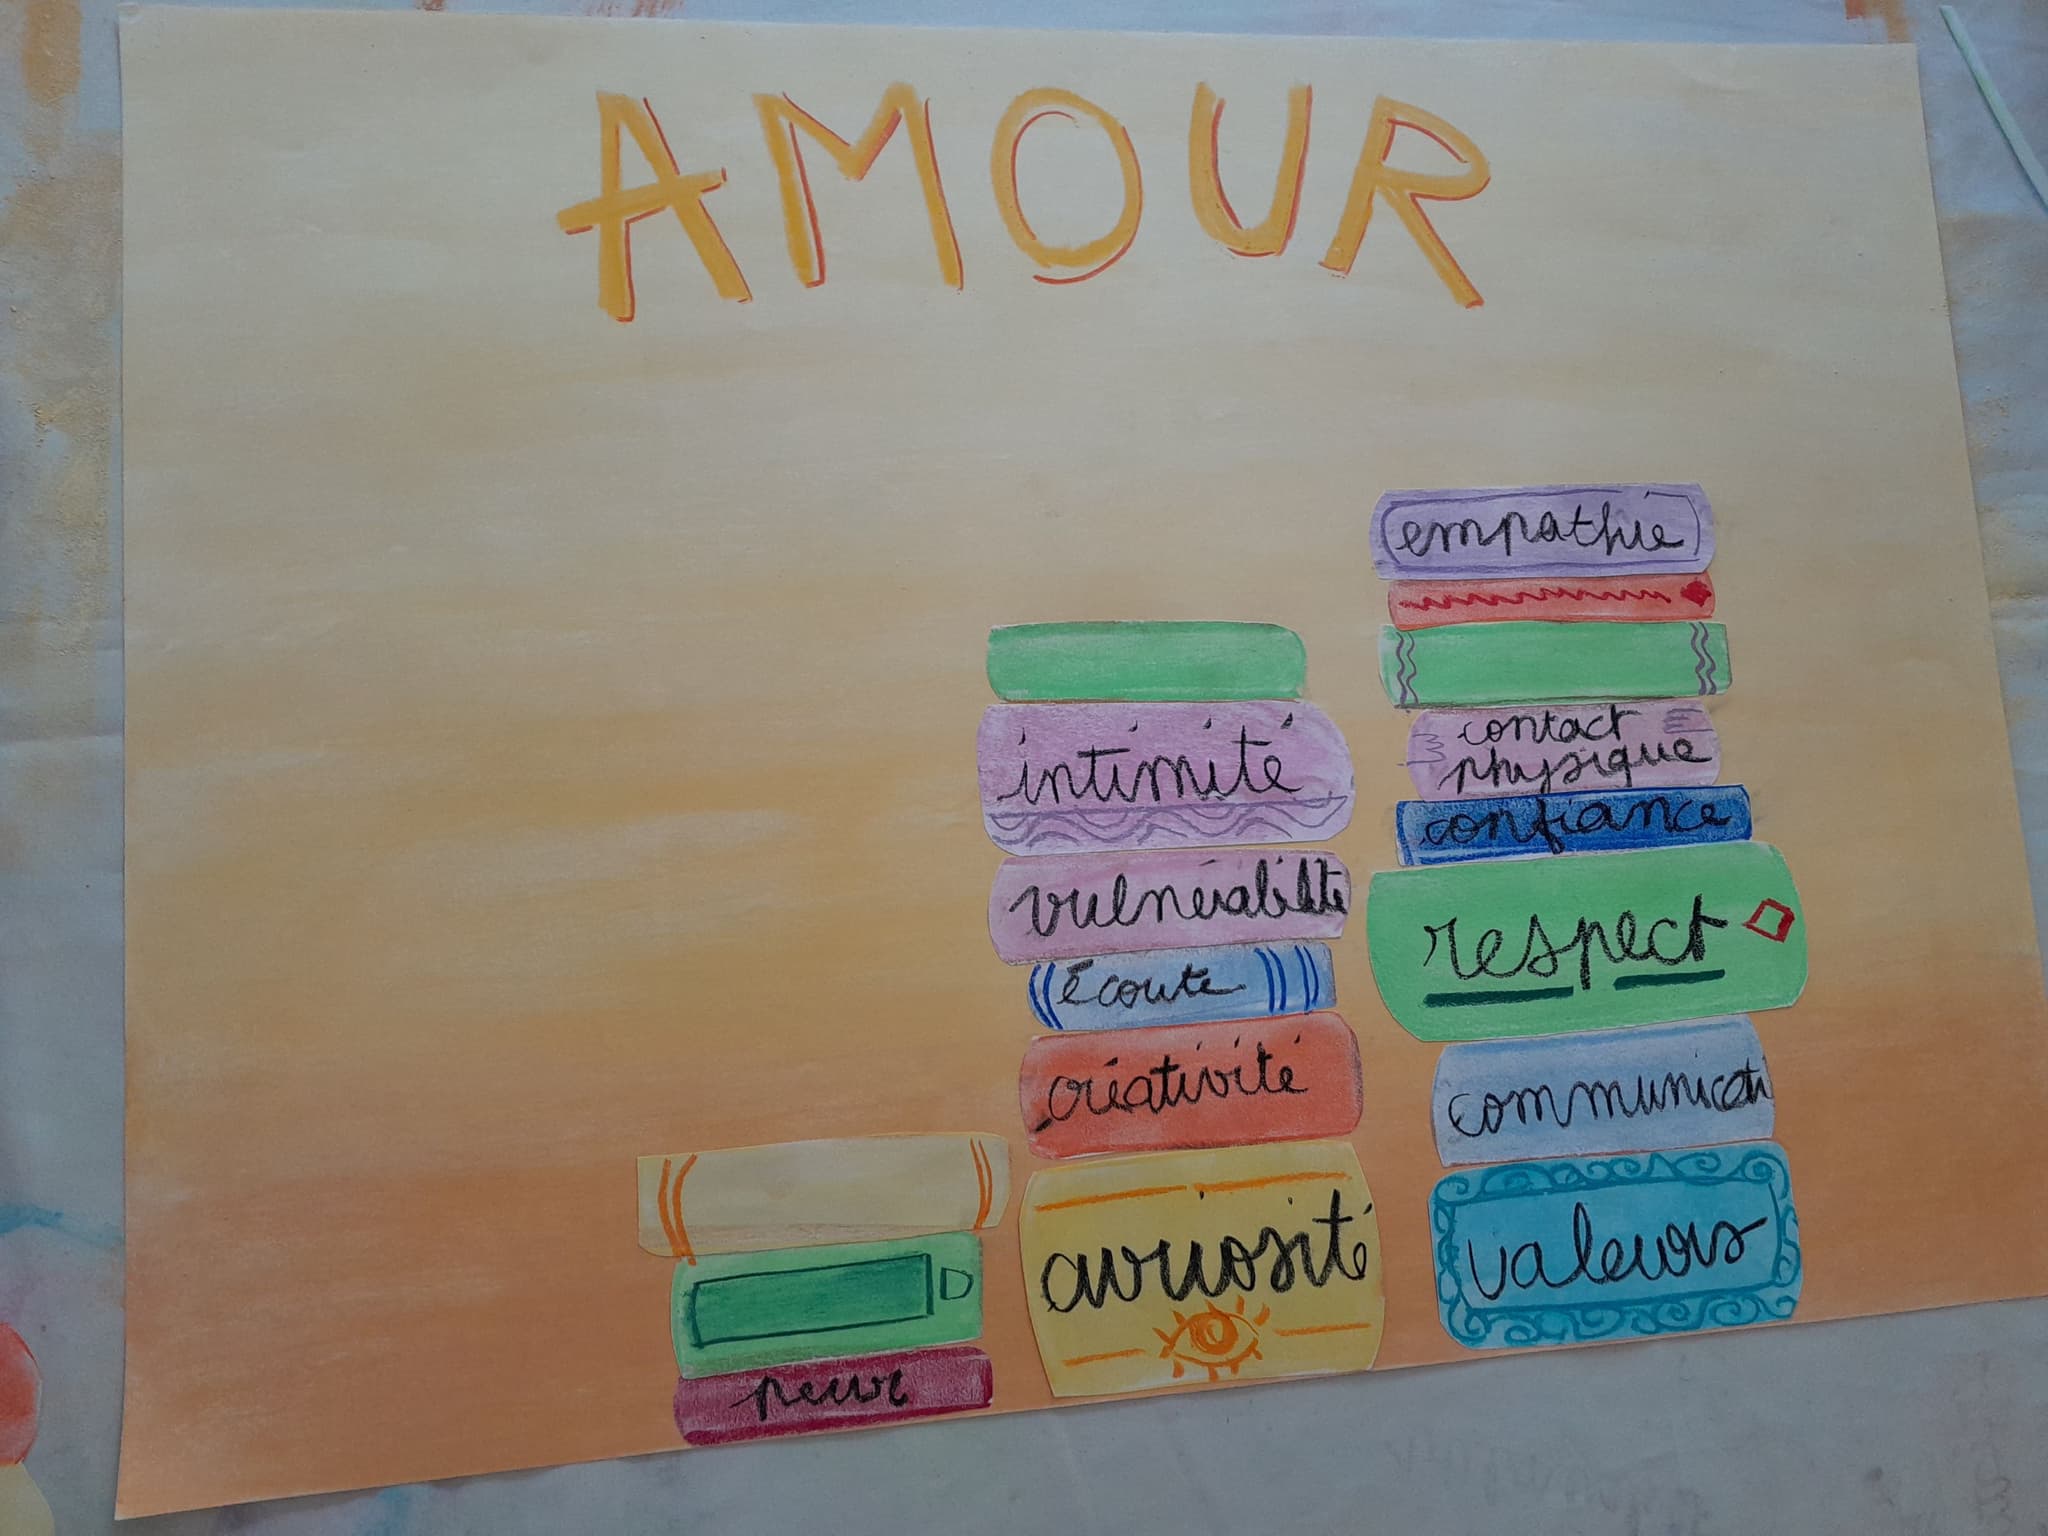 AMOUR
empathie
contact
physique
confiance
respect
communicati
valeurs
intimité
vulnérabilité
écoute
créativité
curiosité
peur